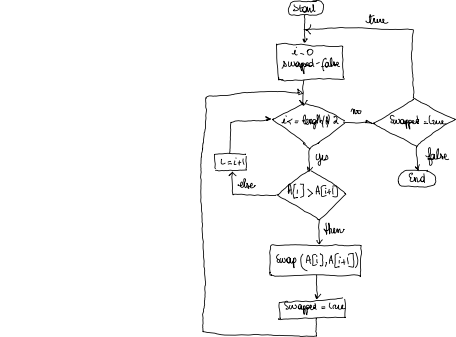 Start
true
i=0
swapped=false
i<=length(A)-2
no
swapped=true
yes
false
i=i+1
End
else
A[i]>A[i+1]
then
Swap(A[i],A[i+1])
Swapped=true